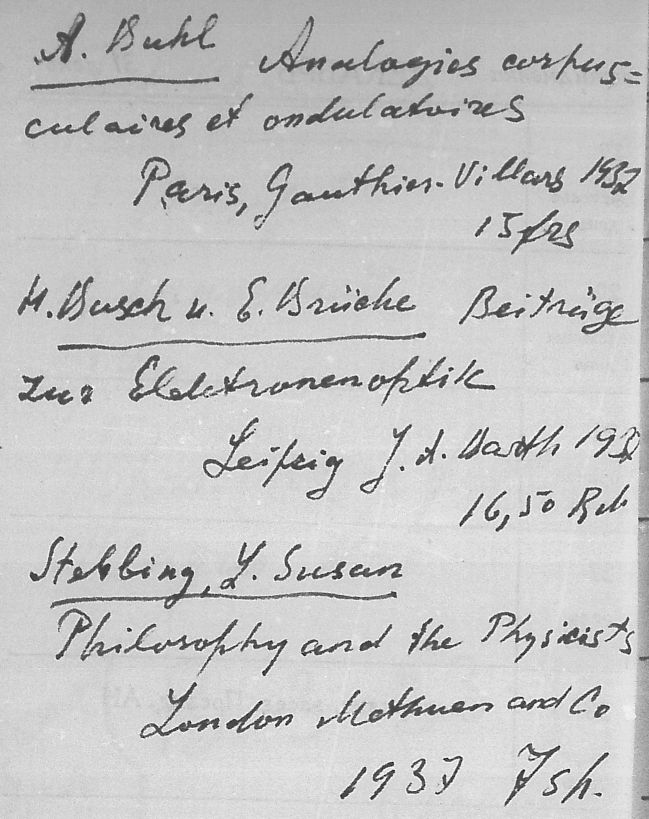 A. Buhl Analogies corpus=
culaires et ondulatoires
Paris, Gauthier-Villars 1937
15 frs
H. Busch u. E. Brüche Beiträge
zur Elektronenoptik
Leipzig J. A. Barth 1937
16,50 Rm
Stebbing, L. Susan
Philosophy and the Physicists
London Methuen and Co
1937 7 sh.